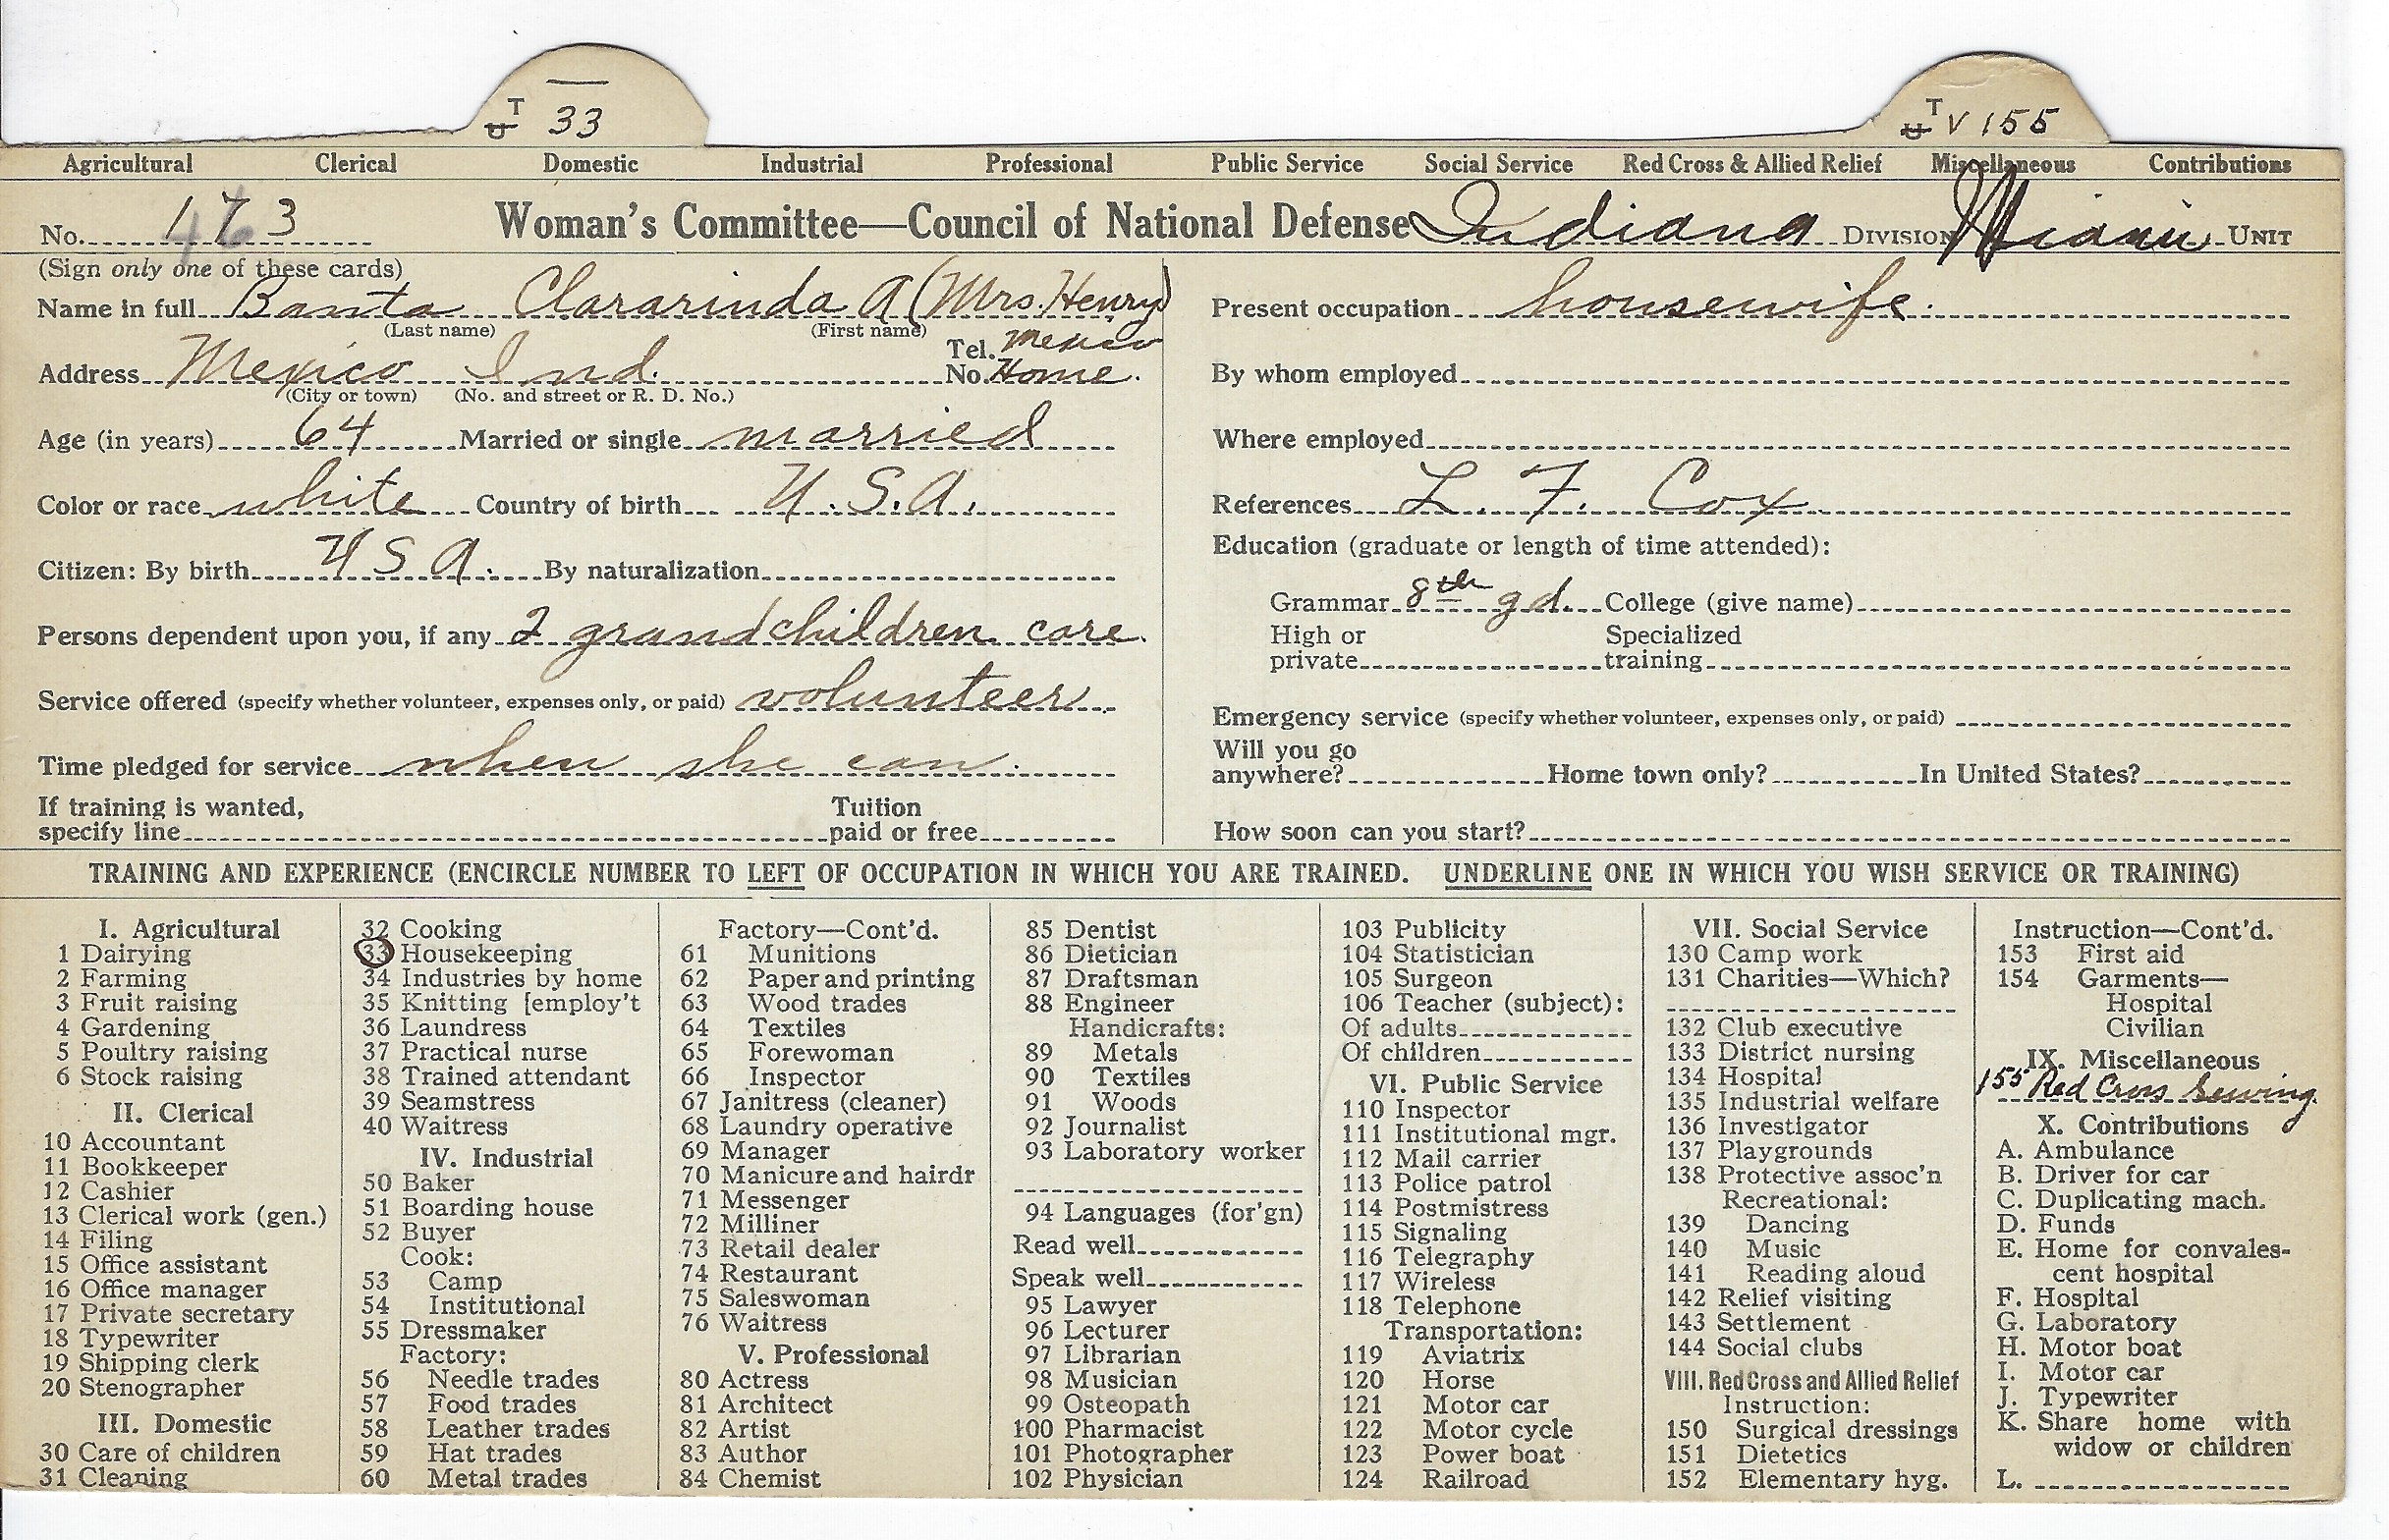 T 33
T V 155
Agricultural Clerical Domestic Industrial Professional Public Service Social Service Red Cross & Allied Relief Miscellaneous Contributions
No. 173 Woman's Committee—Council of National Defense Indiana DIVISION Miami UNIT
(Sign only one of these cards)
Name in full Banta Clararinda A (Mrs. Henry)
(Last name) (First name)
Address Mexico Ind. Tel. No. Mexico Home.
(City or town) (No. and street or R. D. No.)
Age (in years) 64 Married or single married
Color or race white Country of birth U.S.A.
Citizen: By birth U S A. By naturalization
Persons dependent upon you, if any 2 grandchildren care.
Service offered (specify whether volunteer, expenses only, or paid) volunteer
Time pledged for service when she can.
If training is wanted,
specify line
Tuition
paid or free
Present occupation housewife.
By whom employed
Where employed
References L. F. Cox
Education (graduate or length of time attended):
Grammar 8th gd. College (give name)
High or
private
Specialized
training
Emergency service (specify whether volunteer, expenses only, or paid)
Will you go
anywhere? Home town only? In United States?
How soon can you start?
TRAINING AND EXPERIENCE (ENCIRCLE NUMBER TO LEFT OF OCCUPATION IN WHICH YOU ARE TRAINED. UNDERLINE ONE IN WHICH YOU WISH SERVICE OR TRAINING)
I. Agricultural
1 Dairying
2 Farming
3 Fruit raising
4 Gardening
5 Poultry raising
6 Stock raising
II. Clerical
10 Accountant
11 Bookkeeper
12 Cashier
13 Clerical work (gen.)
14 Filing
15 Office assistant
16 Office manager
17 Private secretary
18 Typewriter
19 Shipping clerk
20 Stenographer
III. Domestic
30 Care of children
31 Cleaning
32 Cooking
33 Housekeeping
34 Industries by home
35 Knitting [employ't
36 Laundress
37 Practical nurse
38 Trained attendant
39 Seamstress
40 Waitress
IV. Industrial
50 Baker
51 Boarding house
52 Buyer
Cook:
53 Camp
54 Institutional
55 Dressmaker
Factory:
56 Needle trades
57 Food trades
58 Leather trades
59 Hat trades
60 Metal trades
Factory—Cont'd.
61 Munitions
62 Paper and printing
63 Wood trades
64 Textiles
65 Forewoman
66 Inspector
67 Janitress (cleaner)
68 Laundry operative
69 Manager
70 Manicure and hairdr
71 Messenger
72 Milliner
73 Retail dealer
74 Restaurant
75 Saleswoman
76 Waitress
V. Professional
80 Actress
81 Architect
82 Artist
83 Author
84 Chemist
85 Dentist
86 Dietician
87 Draftsman
88 Engineer
Handicrafts:
89 Metals
90 Textiles
91 Woods
92 Journalist
93 Laboratory worker
94 Languages (for'gn)
Read well
Speak well
95 Lawyer
96 Lecturer
97 Librarian
98 Musician
99 Osteopath
100 Pharmacist
101 Photographer
102 Physician
103 Publicity
104 Statistician
105 Surgeon
106 Teacher (subject):
Of adults
Of children
VI. Public Service
110 Inspector
111 Institutional mgr.
112 Mail carrier
113 Police patrol
114 Postmistress
115 Signaling
116 Telegraphy
117 Wireless
118 Telephone
Transportation:
119 Aviatrix
120 Horse
121 Motor car
122 Motor cycle
123 Power boat
124 Railroad
VII. Social Service
130 Camp work
131 Charities—Which?
132 Club executive
133 District nursing
134 Hospital
135 Industrial welfare
136 Investigator
137 Playgrounds
138 Protective assoc'n
Recreational:
139 Dancing
140 Music
141 Reading aloud
142 Relief visiting
143 Settlement
144 Social clubs
VIII. Red Cross and Allied Relief
Instruction:
150 Surgical dressings
151 Dietetics
152 Elementary hyg.
Instruction—Cont'd.
153 First aid
154 Garments—
Hospital
Civilian
IX. Miscellaneous
155 Red Cross Sewing
X. Contributions
A. Ambulance
B. Driver for car
C. Duplicating mach.
D. Funds
E. Home for convales-
cent hospital
F. Hospital
G. Laboratory
H. Motor boat
I. Motor car
J. Typewriter
K. Share home with
widow or children
L.